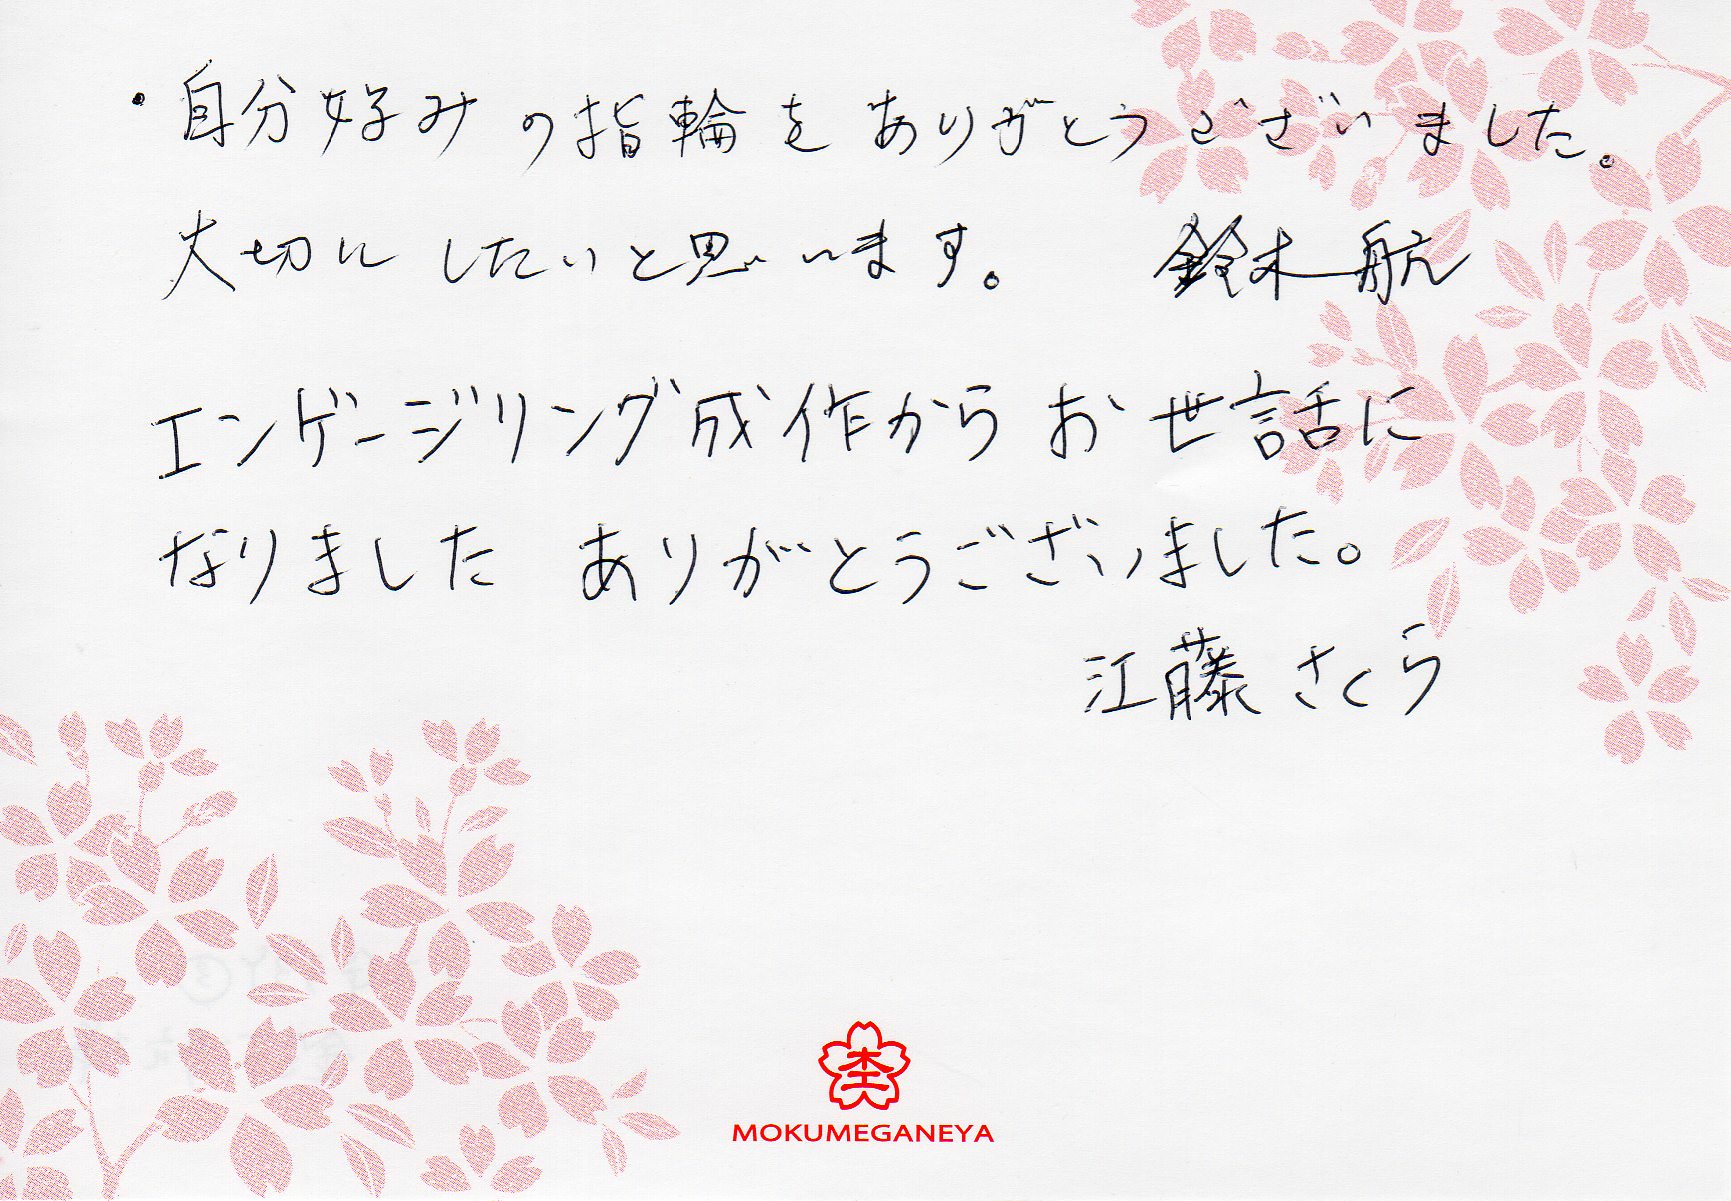 ・自分好みの指輪をありがとうございました。
大切にしたいと思います。 鈴木航
エンゲージリング成作からお世話に
なりました ありがとうございました。
江藤さくら
杢
MOKUMEGANEYA